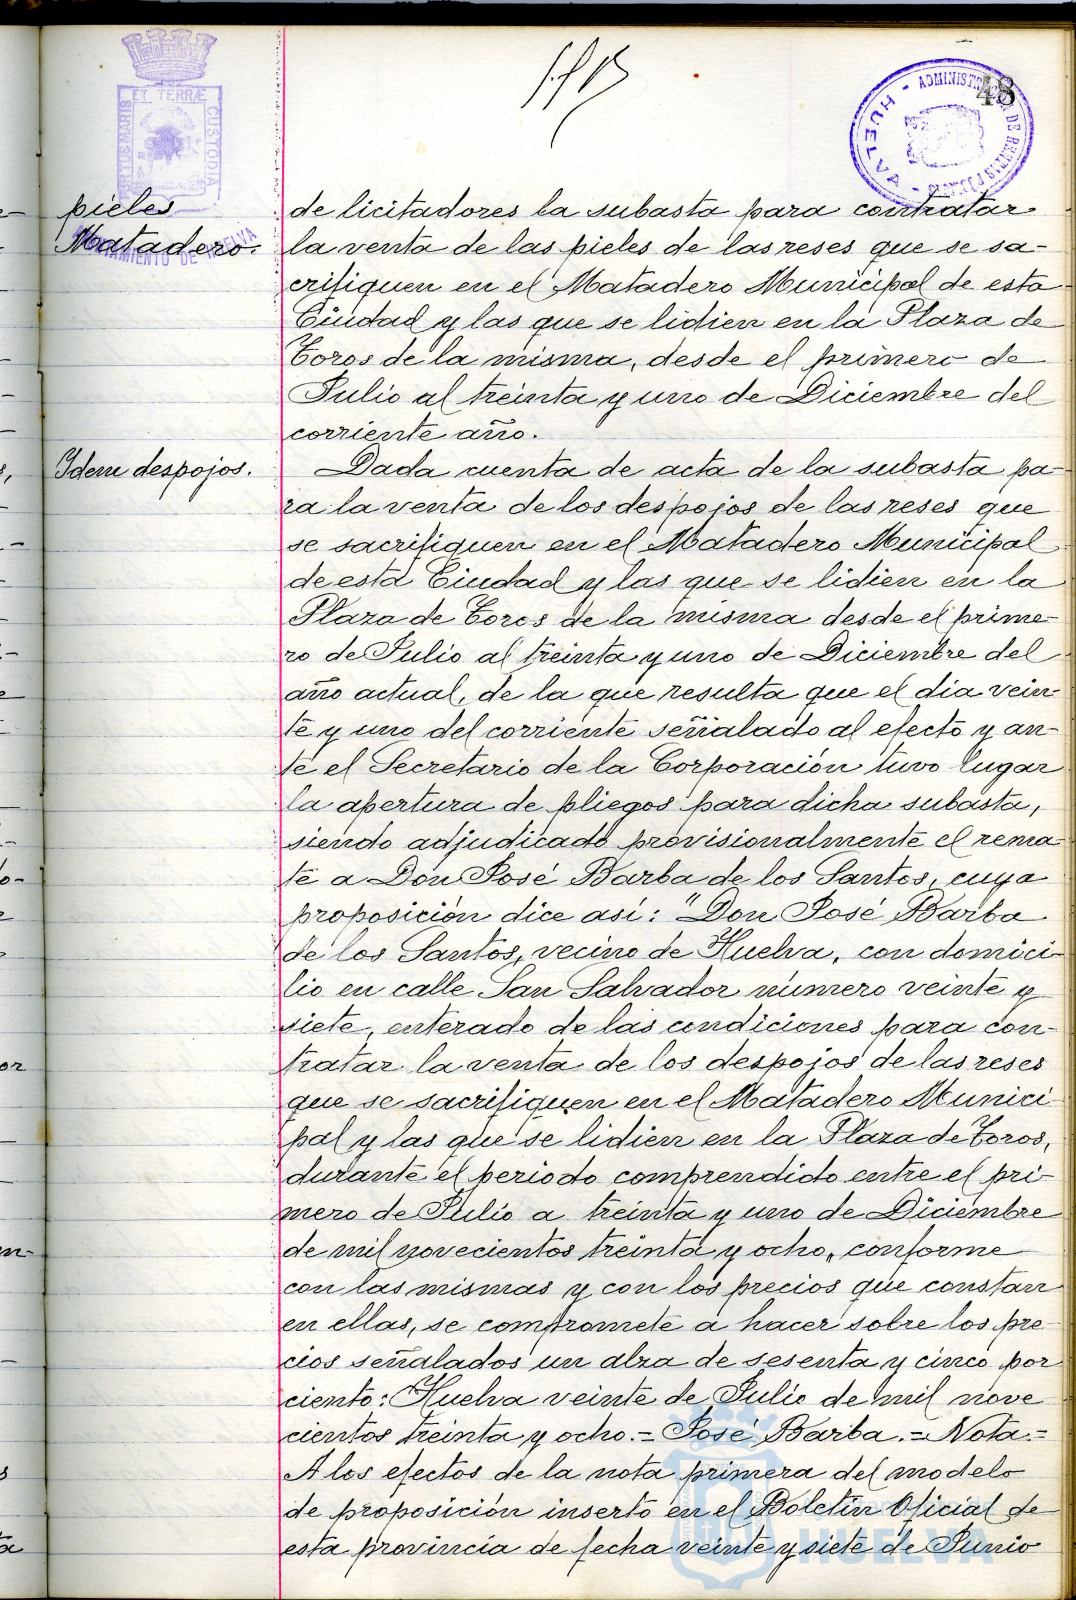 48
ADMINISTR
HUELVA
ET TERRÆ
CUSTODIA
pieles
Matadero.
de licitadores la subasta para contratar
la venta de las pieles de las reses que se sa-
crifiquen en el Matadero Municipal de esta
Ciudad y las que se lidien en la Plaza de
Toros de la misma, desde el primero de
Julio al treinta y uno de Diciembre del
corriente año.
Idem despojos.
Dada cuenta de acta de la subasta pa-
ra la venta de los despojos de las reses que
se sacrifiquen en el Matadero Municipal
de esta Ciudad y las que se lidien en la
Plaza de Toros de la misma desde el prime-
ro de Julio al treinta y uno de Diciembre del
año actual, de la que resulta que el dia vein-
te y uno del corriente señalado al efecto y an-
te el Secretario de la Corporación tuvo lugar
la apertura de pliegos para dicha subasta,
siendo adjudicado provisionalmente el rema-
te a Don José Barba de los Santos, cuya
proposición dice así: "Don José Barba
de los Santos, vecino de Huelva, con domici-
lio en calle San Salvador número veinte y
siete, enterado de las condiciones para con-
tratar la venta de los despojos de las reses
que se sacrifiquen en el Matadero Munici-
pal y las que se lidien en la Plaza de Toros,
durante el periodo comprendido entre el pri-
mero de Julio a treinta y uno de Diciembre
de mil novecientos treinta y ocho, conforme
con las mismas y con los precios que constan
en ellas, se compromete a hacer sobre los pre
cios señalados un alza de sesenta y cinco por
ciento: Huelva veinte de Julio de mil nove
cientos treinta y ocho.= José Barba.= Nota.=
A los efectos de la nota primera del modelo
de proposición inserto en el Boletín Oficial de
esta provincia de fecha veinte y siete de Junio
HUELVA